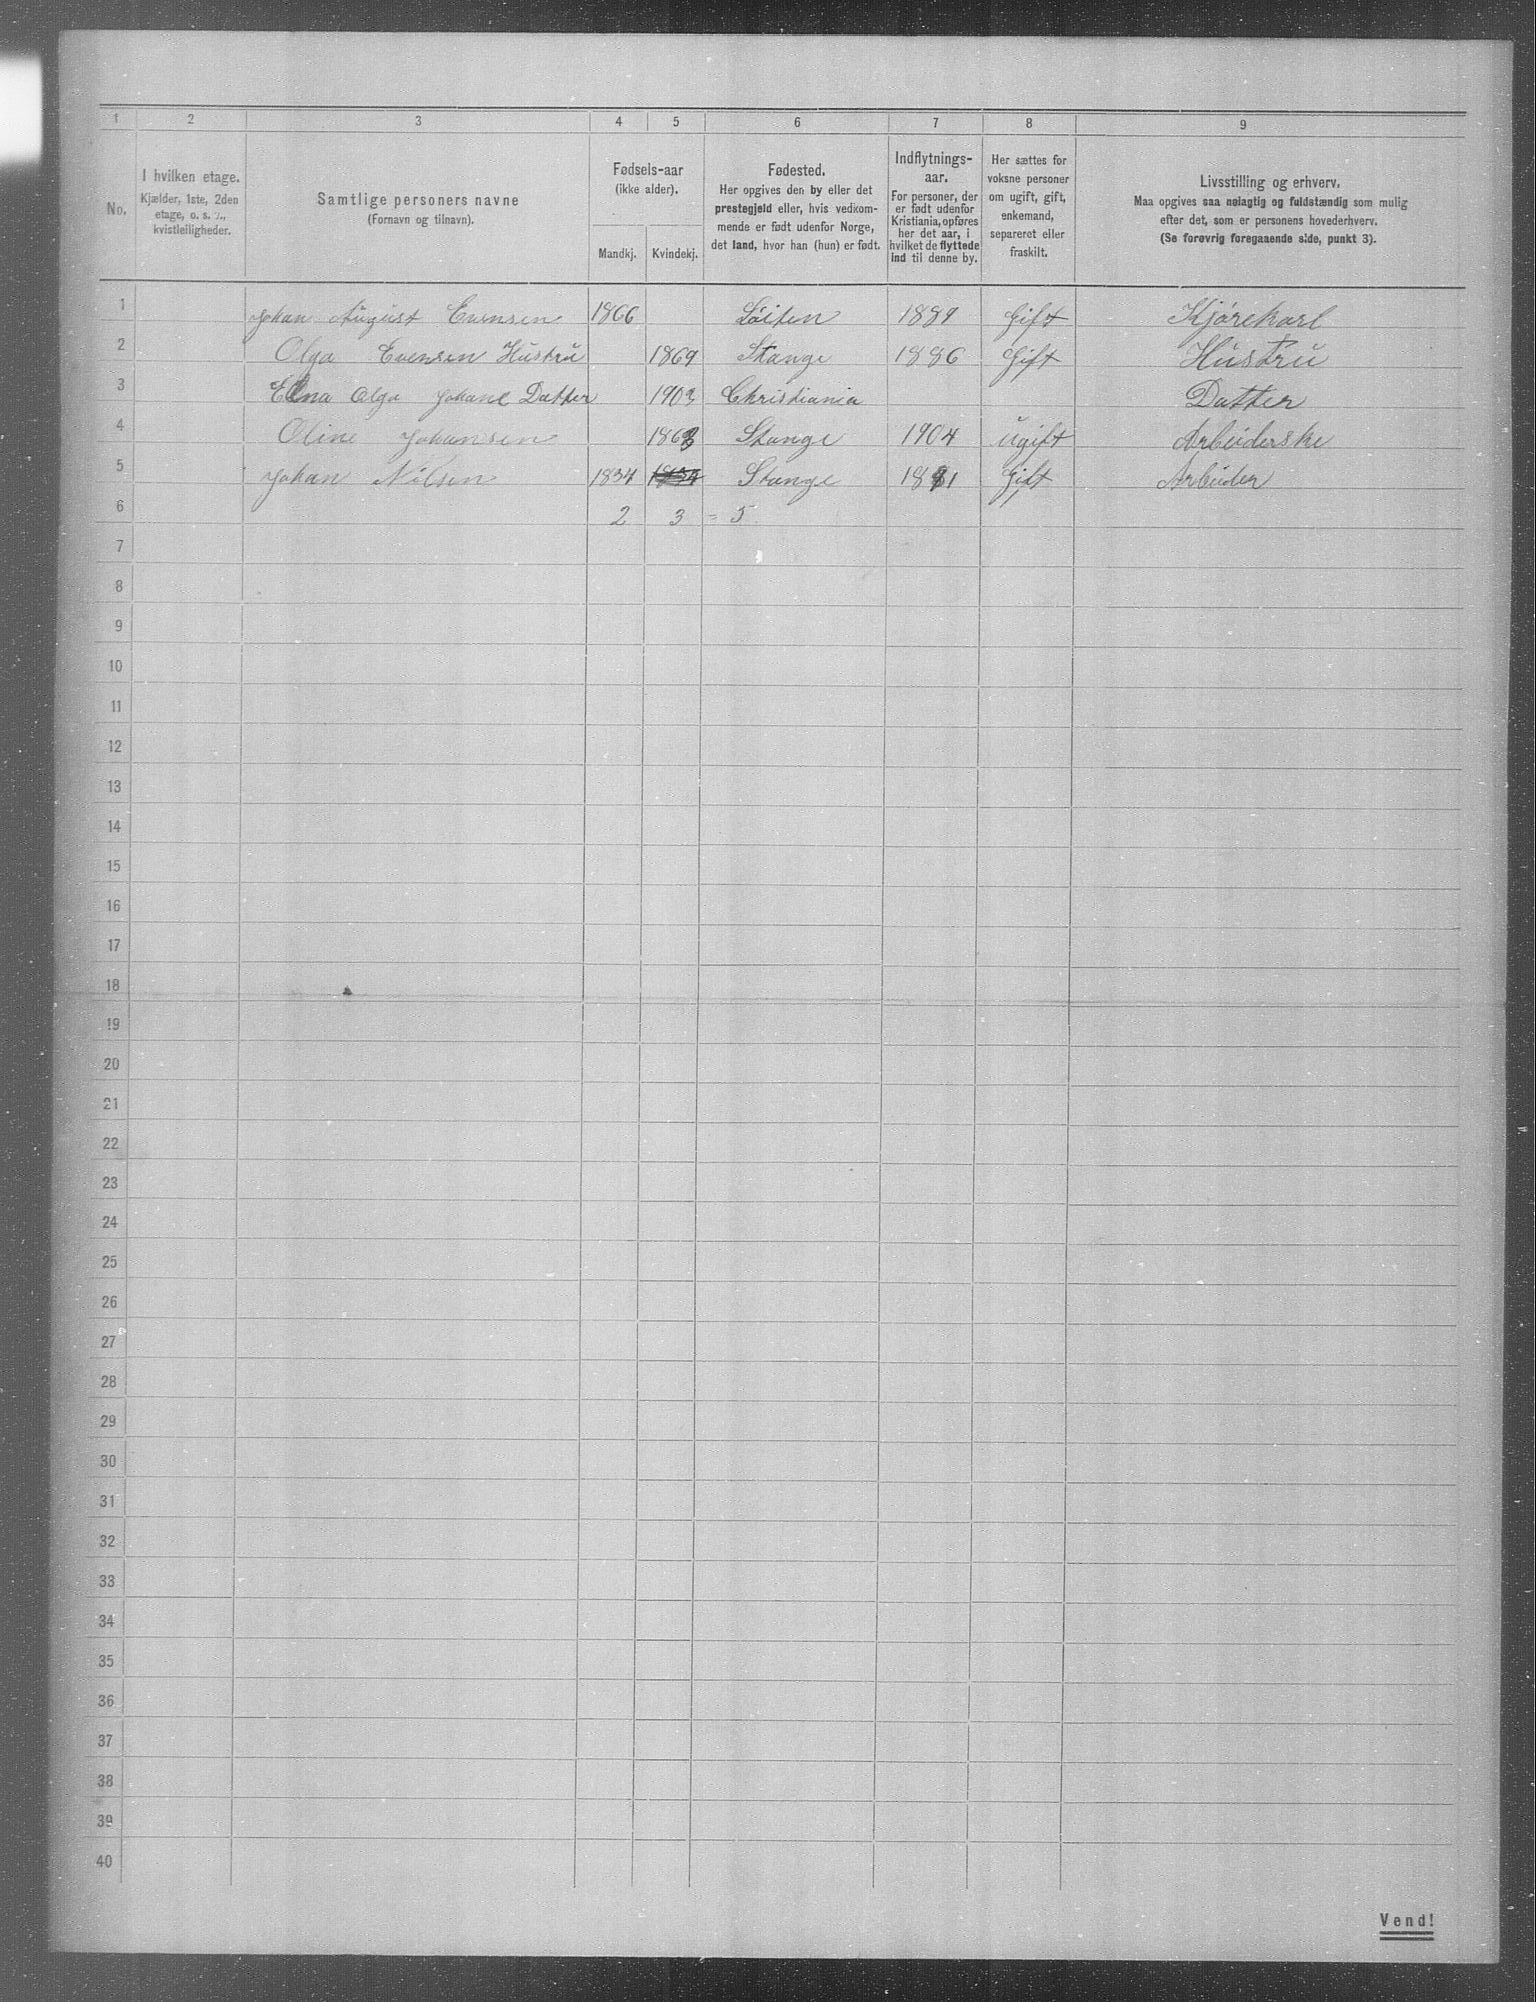 1 2 3 4 5 6 7 8 9
No.
I hvilken etage.
Kjælder, 1ste, 2den
etage, o. s. v.,
kvistleiligheder.
Samtlige personers navne
(Fornavn og tilnavn).
Fødsels-aar
(ikke alder).
Mandkj. Kvindekj.
Fødested.
Her opgives den by eller det
prestegjeld eller, hvis vedkom-
mende er født udenfor Norge,
det land, hvor han (hun) er født.
Indflytnings-
aar.
For personer, der
er født udenfor
Kristiania, opføres
her det aar, i
hvilket de flyttede
ind til denne by.
Her sættes for
voksne personer
om ugift, gift,
enkemand,
separeret eller
fraskilt.
Livsstilling og erhverv.
Maa opgives saa nøiagtig og fuldstændig som mulig
efter det, som er personens hovederhverv.
(Se forøvrig foregaaende side, punkt 3).
1 Johan August Evensen 1866 Løiten 1889 Gift Kjørekarl
2 Olga Evensen Hustru 1869 Stange 1886 Gift Hustru
3 Olga Johane Datter 1903 Christiania Datter
4 Oline Johansen 1863 Stange 1904 ugift Arbeiderske
5 Johan Nilsen 1834 1834 Stange Gift Arbeider
6 2 3 = 5
7
8
9
10
11
12
13
14
15
16
17
18
19
20
21
22
23
24
25
26
27
28
29
30
31
32
33
34
35
36
37
38
39
40
Vend!